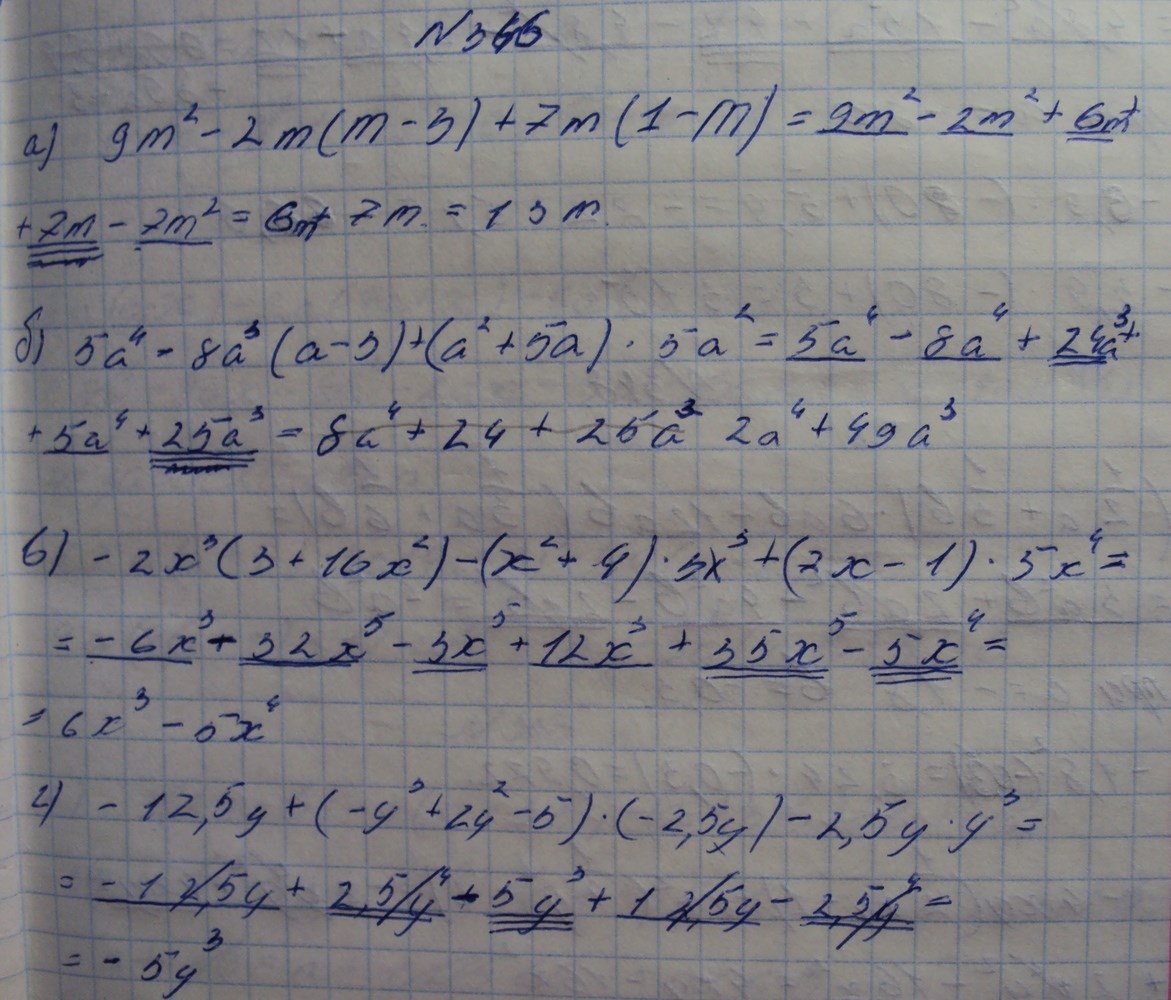 №366
а) 9m² - 2m(m - 3) + 7m(1 - m) = 9m² - 2m² + 6m +
+ 7m - 7m² = 6m + 7m = 13m.
б) 5a⁴ - 8a³(a - 3) + (a² + 5a) · 5a² = 5a⁴ - 8a⁴ + 24a³ +
+ 5a⁴ + 25a³ = 8a⁴ + 24 + 25a³ 2a⁴ + 49a³
в) - 2x³(3 + 16x²) - (x² + 4) · 3x³ + (7x - 1) · 5x⁴ =
= - 6x³ - 32x⁵ - 3x⁵ + 12x³ + 35x⁵ - 5x⁴ =
= 6x³ - 5x⁴
г) - 12,5y + (-y³ + 2y² - 5) · (-2,5y) - 2,5y · y³ =
= - 12,5y + 2,5y⁴ - 5y³ + 12,5y - 2,5y⁴ =
= - 5y³